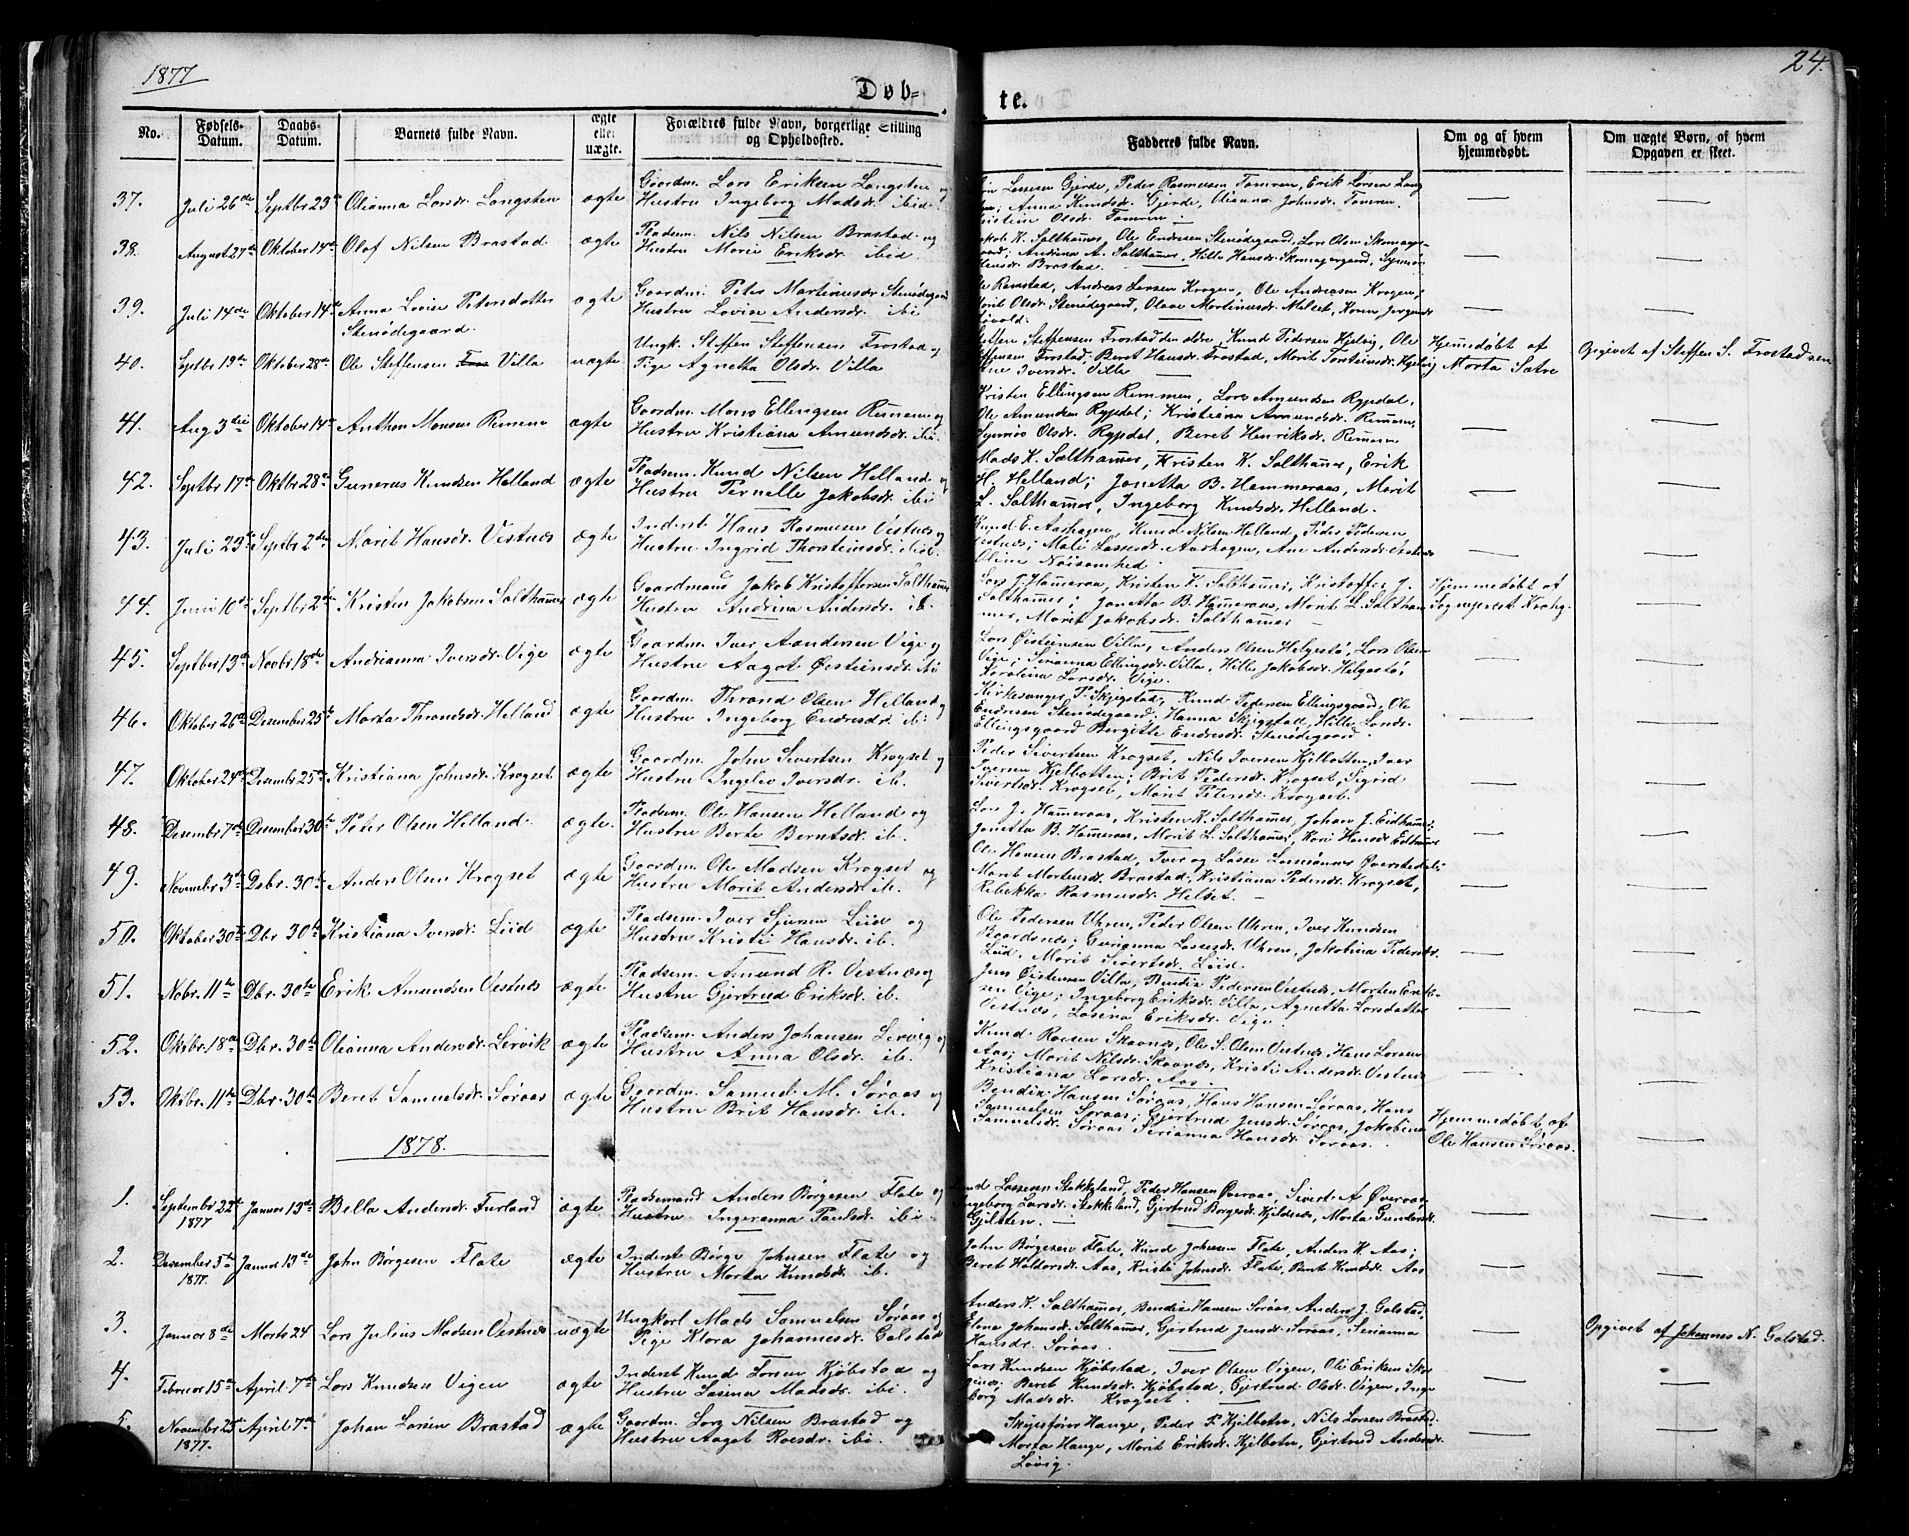 1877
24.
Døb=
te.
No.
Fødsels-
Datum.
Daabs-
Datum.
Barnets fulde Navn.
ægte
eller
uægte.
Forældres fulde Navn, borgerlige Stilling
og Opholdssted.
Fadderes fulde Navn.
Om og af hvem
hjemmedøbt.
Om uægte Børn, af hvem
Opgaven er skeet.
37. Juli 26de Septbr 23de Olianna Larsdr. Langsten ægte
Gaardm. Lars Eriksen Langsten og
Hustru Ingeborg Madsdr. ibid.
Lassesen Gjerde, Peder Rasmussen Tomren, Erik Larsen
Anna Knudsdr. Gjerde, Olianna Johnsdr. Tomren.
Olsdr. Tomren.
38. August 27de Oktober 14de Olaf Nilsen Brastad ægte
Pladsem. Nils Nilsen Brastad og
Hustru Marie Eriksdr. ibid
K. Salthamer, Ole Endresen Stenødegaard, Lars Olsen
Andrina A. Salthamer, Hille Hansdr.
Brastad.
39. Juli 14de Oktober 14de Anna Lovise Petersdatter ægte
Stenødegaard
Gaardm. Peter Martinusdr Stenødegaard
Hustru Lovise Andersdr. ibi
Ramstad, Andreas Larsen Krogen, Ole Andreasen Krogen,
Olsdr. Stenødegaard, Martinusdr. Karen
40. Septbr 19de Oktober 28de Ole Steffensen Villa uægte
Ungk. Steffen Steffensen Frostad og
Pige Agnetha Olsdr. Villa
Steffensen Frostad den eldre, Knud Pedersen Hjelvig, Ole
Frostad, Beret Hansdr. Frostad, Marit Hjelvig
Iversdr. Villa
Hjemmedøbt af
Marta Sætre
Opgivet af Steffen S. Frostadsen
41. Aug 3die Oktober 14de Anthon Monsen Remmem ægte
Gaardm. Mons Ellingsen Remmem og
Hustru Kristiana Amundsdr. ibi
Kristen Ellingsen Remmem, Lars Amundsen Rypdal,
Ole Amundsen Rypdal; Kristiana Amundsdr. Remmem,
Synnøv Olsdr. Rypdal, Beret Henriksdr. Remmem
42. Septbr 17de Oktbr 28de Gunerus Knudsen Helland ægte
Pladsem. Knud Nilsen Helland og
Hustru Pernelle Jakobsdr. ibi
Mads K. Salthamer, Kristen K. Salthamer, Erik
H. Helland; Jonetta B. Hammeraas, Marit
L. Salthamer, Ingeborg Knudsdr. Helland.
43. Juli 23de Septbr 2den Marit Hansdr. Vestnes ægte
Inderst Hans Rasmusen Vestnes og
Hustru Ingrid Thorsteinsdr. ibid.
Knud E. Aarhagen, Knud Nilsen Helland, Peder Pedersen
Vestnes; Mali Lassesdr. Aarhagen, Ane Andersdr. Vestnes
Oline Nøisomhed
44. Juni 10de Septbr 2den Kristen Jakobsen Salthamer ægte
Gaardmand Jakob Kristoffersen Salthamer
Hustru Andrina Andersdr. ib.
Lars J. Hameraas, Kristen K. Salthamer, Kristoffer J.
Salthamer; Jonetta B. Hameraas, Marit L. Salthamer,
Marit Jakobsdr. Salthamer
Hjemmedøbt af
Sogneprest Krohg.
45. Septber 13de Novbr 18de Andrianna Iversdr. Vige ægte
Gaardm. Iver Aandersen Vige og
Hustru Aagot Øisteinsdr. ibi
Lars Øisteinsen Villa, Anders Olsen Helgestø, Lars Olsen
Vige; Serianna Ellingsdr. Villa, Hille Jakobsdr. Helgestø,
Karolina Larsdr. Vige.
46. Oktober 26de Desember 25de Marta Thrandsdr. Helland ægte
Gaardm. Thrand Olsen Helland og
Hustru Ingeborg Endresdr. ibi
Kirkesanger P. Skjegstad, Knud Pedersen Ellingsgaard, Ole
Endresen Stenødegaard; Hanna Skjegstad, Hille Larsdr.
Ellingsgaard Bergitte Endresdr. Stenødegaard.
47. Oktober 24de Desember 25de Kristiana Johnsdr. Krogset ægte
Gaardm. John Sivertsen Krogset og
Hustru Ingeleiv Iversdr. ib.
Peder Sivertsen Krogset, Nils Iversen Kjelbotten, Iver
Iversen Kjelbotten; Brit Pedersdr. Krogset, Sigrid
Sivertsdr. Krogset, Marit Petersdr. Krogset.
48. Desembr 7de Desember 30te Peter Olsen Helland. ægte.
Pladsem. Ole Hansen Helland og
Hustru Berte Berntsdr. ib.
Lars J. Hameraas, Kristen K. Salthamer, Johan J. Eidhamer,
Jonetta B. Hameraas, Marit L. Salthamer, Kari Hansdr. Eidhamer
49. November 3de Dsbr. 30te Anders Olsen Krogset ægte
Gaardm. Ole Madsen Krogset og
Hustru Marit Andersdr. ib.
Ole Hansen Brastad, Iver og Lasse
Marit Mortensdr. Brastad, Kristiana Pedersdr. Krogset,
Rebekka Rasmusdr. Helset.
50. Oktober 30te Dbr. 30te Kristiana Iversdr. Leiid ægte
Pladsem. Iver Sjursen Leiid og
Hustru Kristi Hansdr. ib.
Ole Pedersen Uhren, Peder Olsen Uhren, Iver Knudsen
Baardsnes; Gurianna Lassesdr. Uhren, Jakobina Pedersdr.
Leiid. Marit Sivertsdr. Leiid.
51. Nobr. 11te Dbr. 30te Erik Amundsen Vestnes ægte
Pladsem. Amund R. Vestnes og
Hustru Gjertrud Eriksdr. ib.
Jens Øistensen Villa, Bendix Pedersen Vestnes, Morten Erik-
sen Vige; Ingeborg Eriksdr. Villa, Agnetha Larsdatter
Vestnes, Lasina Eriksdr. Vige.
52. Oktbr. 18de Dbr. 30te Olianna Andersdr. Lervik ægte
Pladsem. Anders Johansen Lervig og
Hustru Anna Olsdr. ib.
Knud Roesen Skavnes, Ole S. Olsen Vestnes, Hans Larsen
Aas; Marit Nilsdr. Skavnes, Kristi Andersdr. Vestnes
Kristiana Larsdr. Aas.
53. Oktbr. 11te Dbr. 30te Beret Samuelsdr. Søraas ægte
Gaardm. Samuel M. Søraas og
Hustru Brit Hansdr. ib.
Bendix Hansen Søraas, Hans Hansen Søraas, Hans
Samuelsen Søraas; Gjertrud Jensdr. Søraas, Jakobina
Samuelsdr. Søraas, Serianna Hansdr. Søraas.
Hjemmedøbt af
Ole Hansen Søraas.
1878.
1. September 22de Januar 13de Bella Andersdr. Furland ægte
1877
Pladsemand Anders Børgesen Flate og
Hustru Ingeranna Paulsdr. ibi.
Lassesen Stokkeland, Peder Hansen Øveraas, Sivert A. Øveraas,
Ingeborg Larsdr. Stokkeland, Gjertrud Børgesdr. Kjeldsen, Marta Gundersdr.
Gjelsten.
2. Desember 5te Januar 13de John Børgesen Flate ægte
1877.
Inderst Børge Johnsen Flate og
Hustru Marta Knudsdr. ib.
John Børgesen Flate, Knud Johnsen Flate, Anders K. Aas;
Beret Haldorsdr. Aas, Kristi Johnsdr. Flate, Berit Knudsdr. Aas
3. Januar 8de Marts 24 Lars Julius Madsen Vestnes uægte
Ungkarl Mads Samuelsen Søraas og
Pige Klara Johannesdr. Galstad
Anders K. Salthamer, Bendix Hansen Søraas, Anders J. Galstad,
Elena Johansdr. Salthamer, Gjertrud Jensdr. Søraas, Serianna
Hansdr. Søraas.
Opgivet af Johannes N. Galstad.
4. Februar 15de April 7de Lars Knudsen Vigen ægte
Inderst Knud Larsen Kjøbstad og
Hustru Lasina Madsdr. ibi.
Lars Knudsen Kjøbstad, Iver Olsen Vigen, Ole Eriksen
Beret Knudsdr. Kjøbstad, Gjertrud Olsdr. Vigen, Inge
borg Madsdr. Krogset.
5. November 25 April 7de Johan Larsen Brastad ægte
1877.
Gaardm. Lars Nilsen Brastad og
Hustru Aagot Roesdr. ibi.
Skyesfører Hauge, Peder P. Kjelbotn, Nils Larsen Brastad
Marta Hauge, Marit Eriksdr. Kjelbotn, Gjertrud Andersdr.
Løvig.